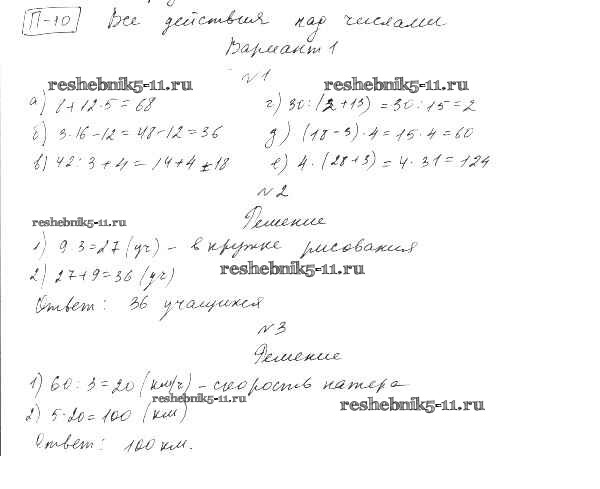 П-10 Все действия над числами
Вариант 1
№1
reshebnik5-11.ru reshebnik5-11.ru
а) 8+12·5=68 г) 30:(2+13)=30:15=2
б) 3·16-12=48-12=36 д) (18-3)·4=15·4=60
в) 42:3+4=14+4=18 е) 4·(28+3)=4·31=124
№2
reshebnik5-11.ru Решение
1) 9·3=27 (уч) - в кружке рисования
reshebnik5-11.ru
2) 27+9=36 (уч)
Ответ: 36 учащихся
№3
Решение
1) 60:3=20 (км/ч) - скорость катера
reshebnik5-11.ru reshebnik5-11.ru
2) 5·20=100 (км)
Ответ: 100 км.